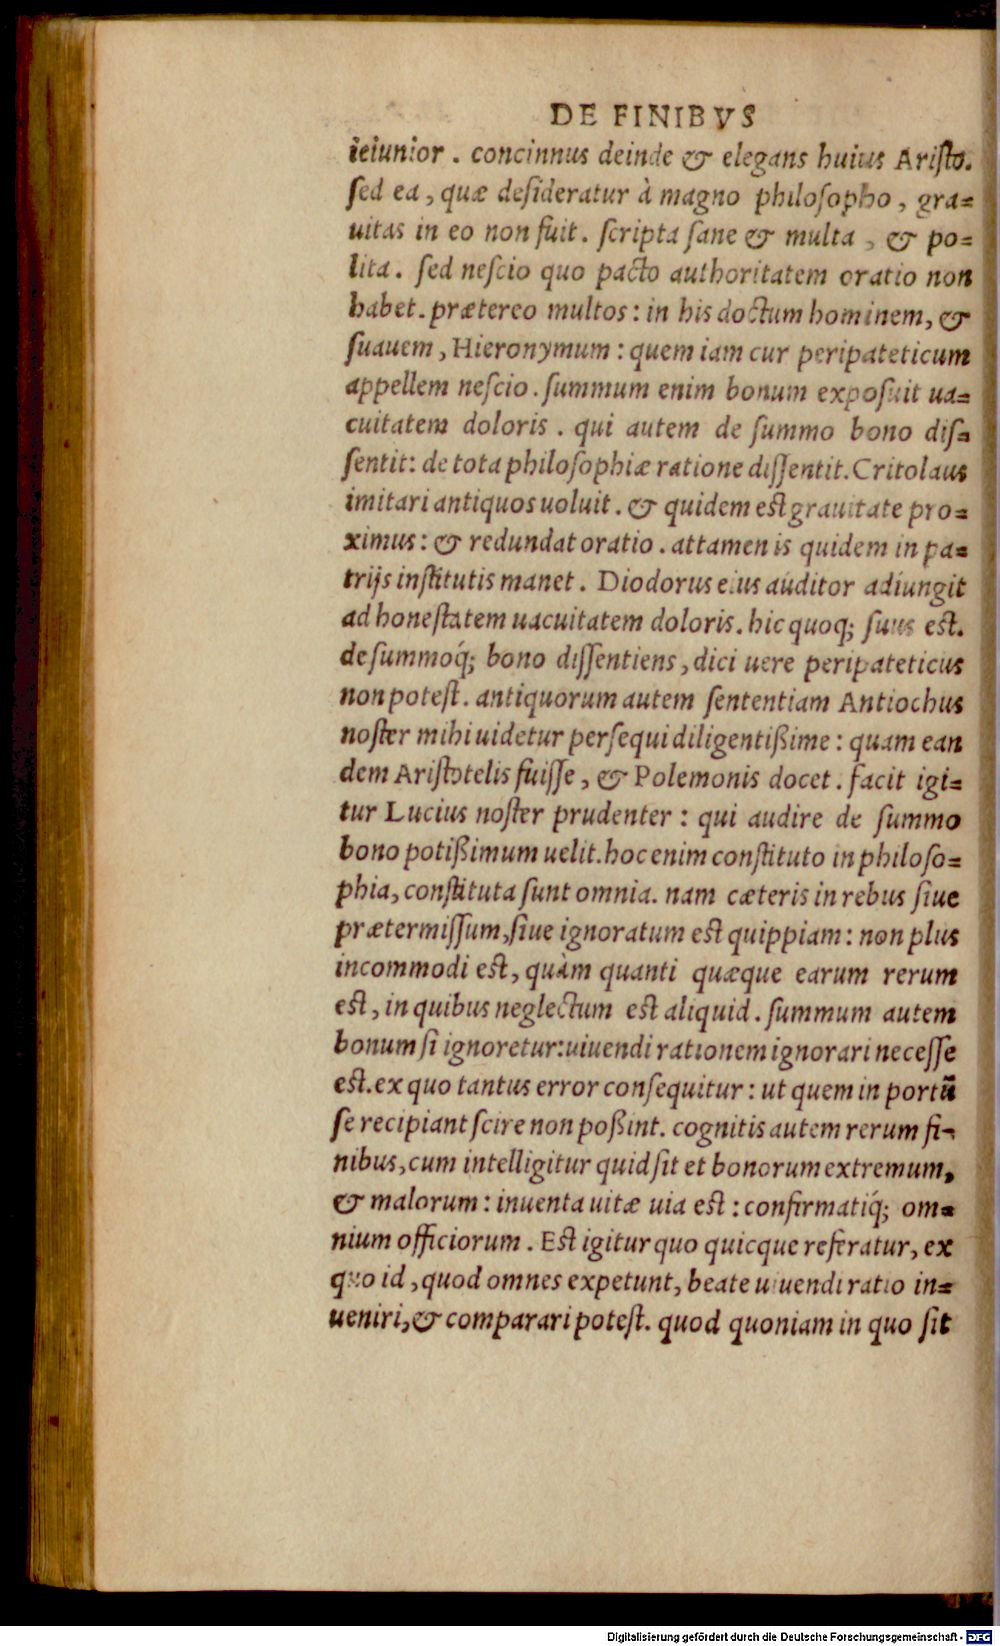 DE FINIBVS
ieiunior . concinnus deinde & elegans huius Aristo.
sed ea , quæ desideratur à magno philosopho , gra=
uitas in eo non fuit . scripta sane & multa , & po=
lita . sed nescio quo pacto authoritatem oratio non
habet . prætereo multos : in his doctum hominem, &
suauem , Hieronymum : quem iam cur peripateticum
appellem nescio . summum enim bonum exposuit ua=
cuitatem doloris . qui autem de summo bono dis=
sentit: de tota philosophiæ ratione dissentit. Critolaus
imitari antiquos uoluit . & quidem est grauitate pro=
ximus : & redundat oratio . attamen is quidem in pa=
trijs institutis manet . Diodorus eius auditor adiungit
ad honestatem uacuitatem doloris . hic quoq; suus est.
de summoq́; bono dissentiens , dici uere peripateticus
non potest . antiquorum autem sententiam Antiochus
noster mihi uidetur persequi diligentißime : quam ean
dem Aristotelis fuisse , & Polemonis docet . facit igi=
tur Lucius noster prudenter : qui audire de summo
bono potißimum uelit. hoc enim constituto in philoso=
phia, constituta sunt omnia. nam cæteris in rebus siue
prætermissum, siue ignoratum est quippiam : non plus
incommodi est , quàm quanti quæque earum rerum
est , in quibus neglectum est aliquid . summum autem
bonum si ignoretur: uiuendi rationem ignorari necesse
est. ex quo tantus error consequitur : ut quem in portū
se recipiant scire non poßint. cognitis autem rerum fi=
nibus, cum intelligitur quid sit et bonorum extremum,
& malorum : inuenta uitæ uia est : confirmatiq́; om=
nium officiorum . Est igitur quo quicque referatur, ex
quo id , quod omnes expetunt, beate uiuendi ratio in=
ueniri, & comparari potest. quod quoniam in quo sit
Digitalisierung gefördert durch die Deutsche Forschungsgemeinschaft - DFG